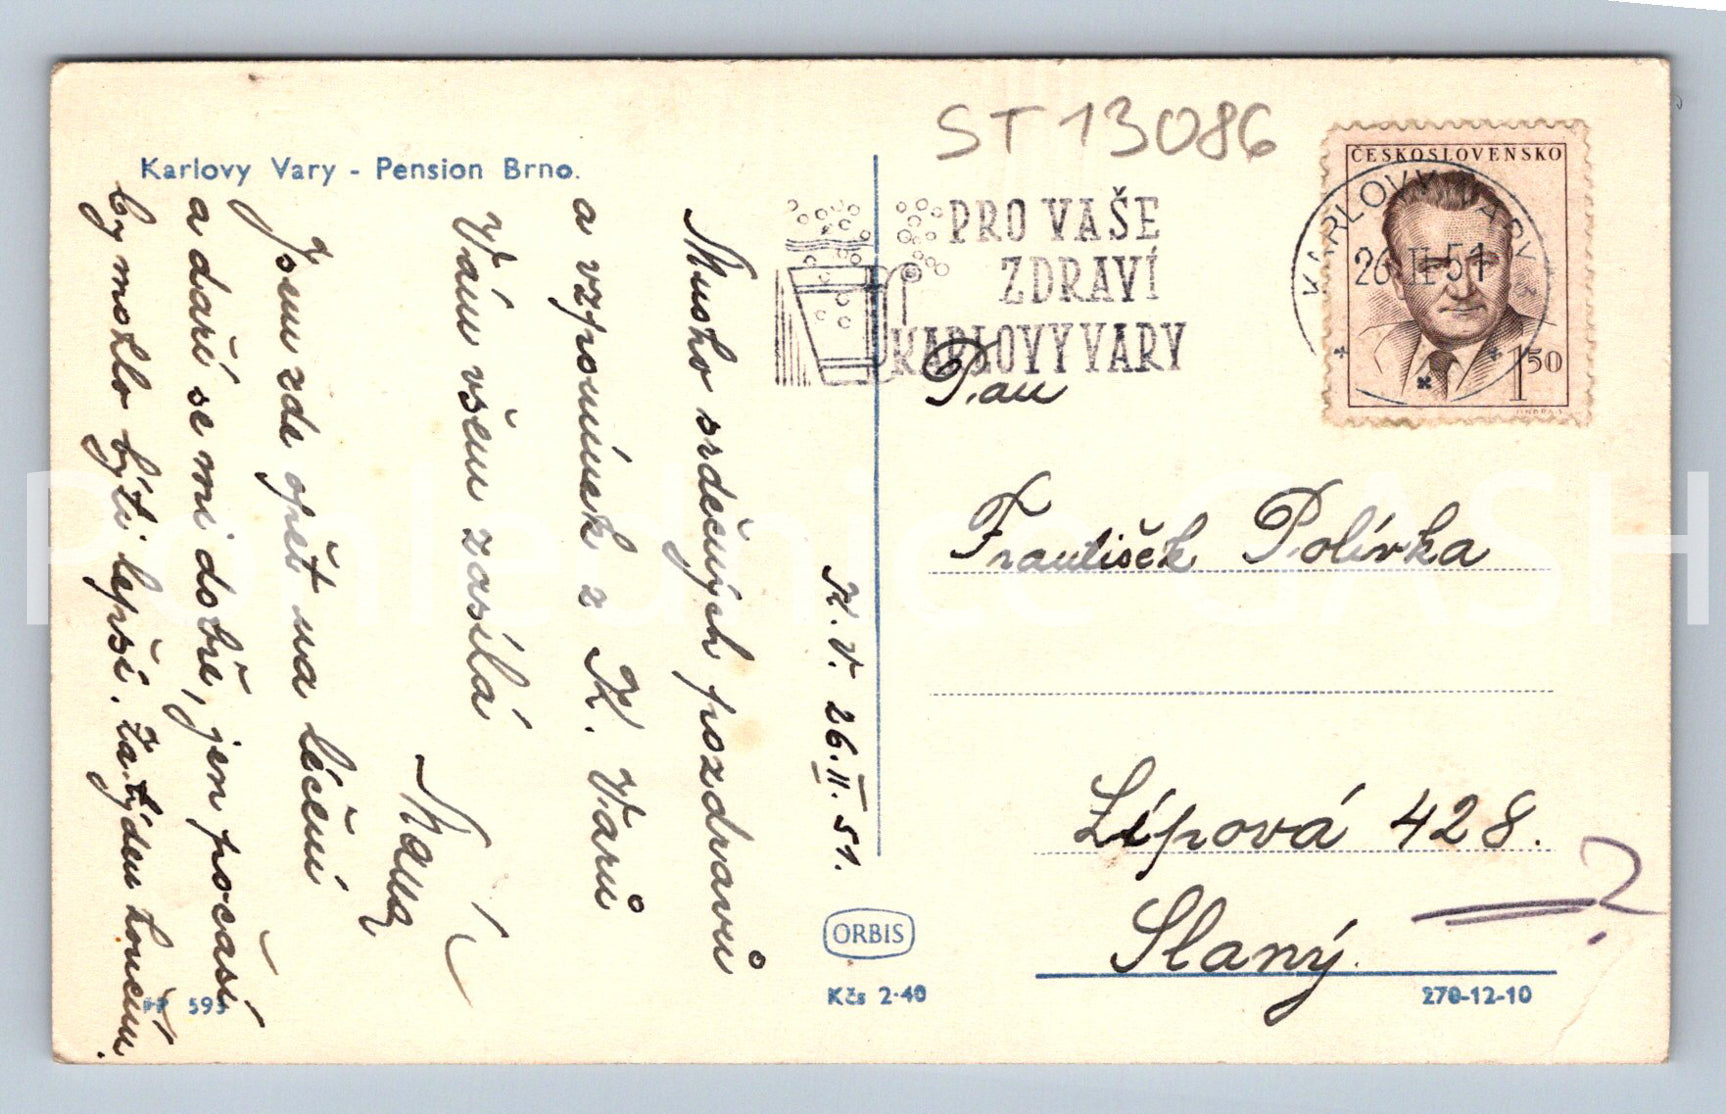 ST 13086
Karlovy Vary - Pension Brno.
K. V. 26.II. 51.
Mnoho srdečných pozdravů
a vzpomínek z K. Varů
Vám všem zasílá
Jsem zde opět na léčení
a daří se mi dobře, jen počasí
by mohlo býti lepší. Za týden končím.
PRO VAŠE
ZDRAVÍ
KARLOVY VARY
ČESKOSLOVENSKO
KARLOVY VARY 3
26.II.51
1.50
Pan
František Polívka
Lípová 428.
Slaný.
?
ORBIS
Kčs 2·40
278-12-10
Pohlednice GASH